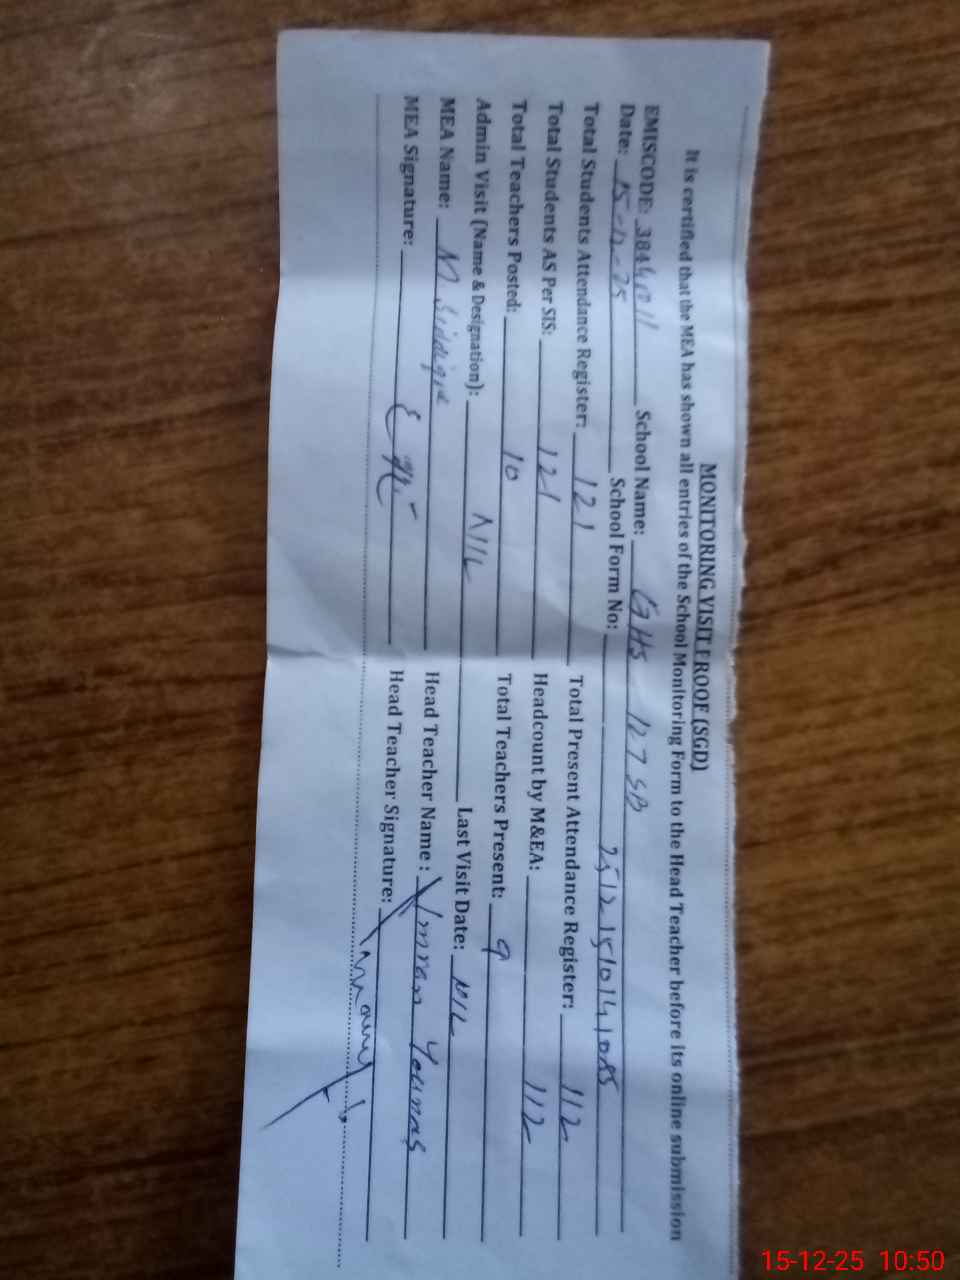 MONITORING VISIT PROOF (SGD)
It is certified that the MEA has shown all entries of the School Monitoring Form to the Head Teacher before its online submission
EMISCODE: School Name: GHS 127 SB
Date: 15-12-25 School Form No:
Total Students Attendance Register: 121 Total Present Attendance Register: 112
Total Students AS Per SIS: 121 Headcount by M&EA: 112
Total Teachers Posted: 10 Total Teachers Present: 9
Admin Visit (Name & Designation): NIL Last Visit Date: NIL
MEA Name: M Siddique Head Teacher Name : Imran Younas
MEA Signature: Head Teacher Signature:
15-12-25 10:50